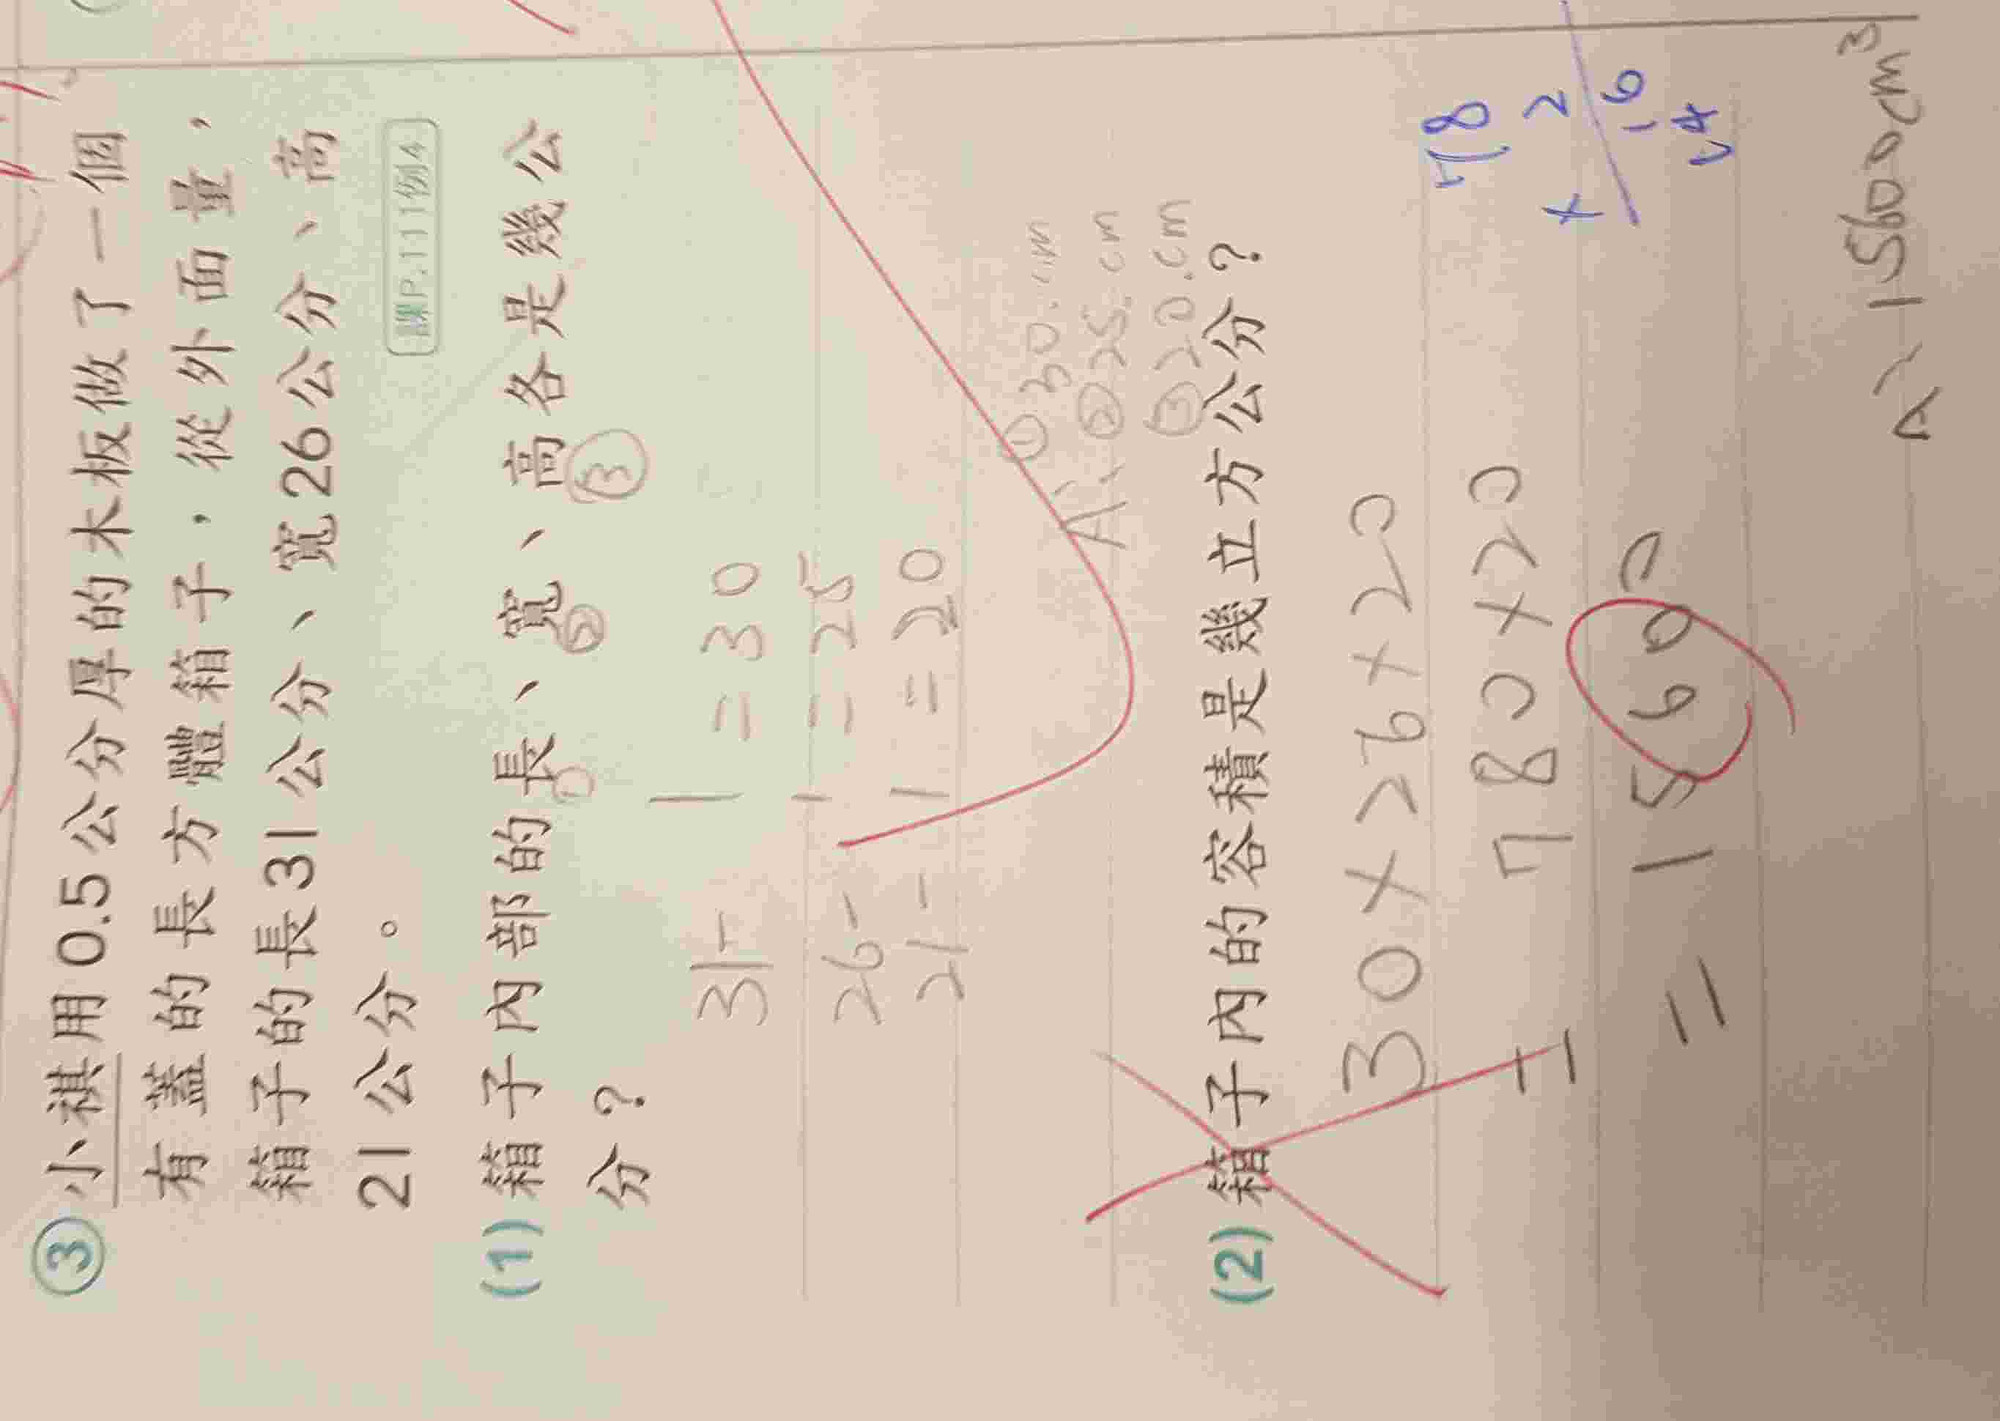 ③ 小祺用0.5公分厚的木板做了一個
有蓋的長方體箱子，從外面量，
箱子的長31公分、寬26公分、高
21公分。
課P.111例4
(1) 箱子內部的長、寬、高各是幾公
① ② ③
分？
31-1=30
26-1=25
21-1=20
A: ①30.cm
②25.cm
③20.cm
(2) 箱子內的容積是幾立方公分？
30×26×20
=780×20
=15600
78
×2
16
14
A: 15600cm³